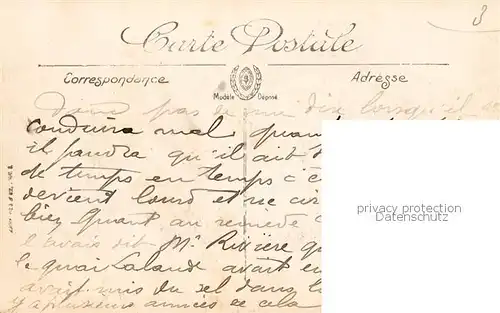 3
Carte Postale
Correspondance
Adresse
Modèle Déposé
Donc pas je me dis lorsqu'il
conduira mal quan
Il faudra qu'il ait
de temps en temps c'e
devient lourd et ne cir
bien Quant au remède
l'avais dit Mr Rivière qu
le quai Lalande avait en
avait mis du sel dans
y a plusieurs années de cela
privacy protection
Datenschutz